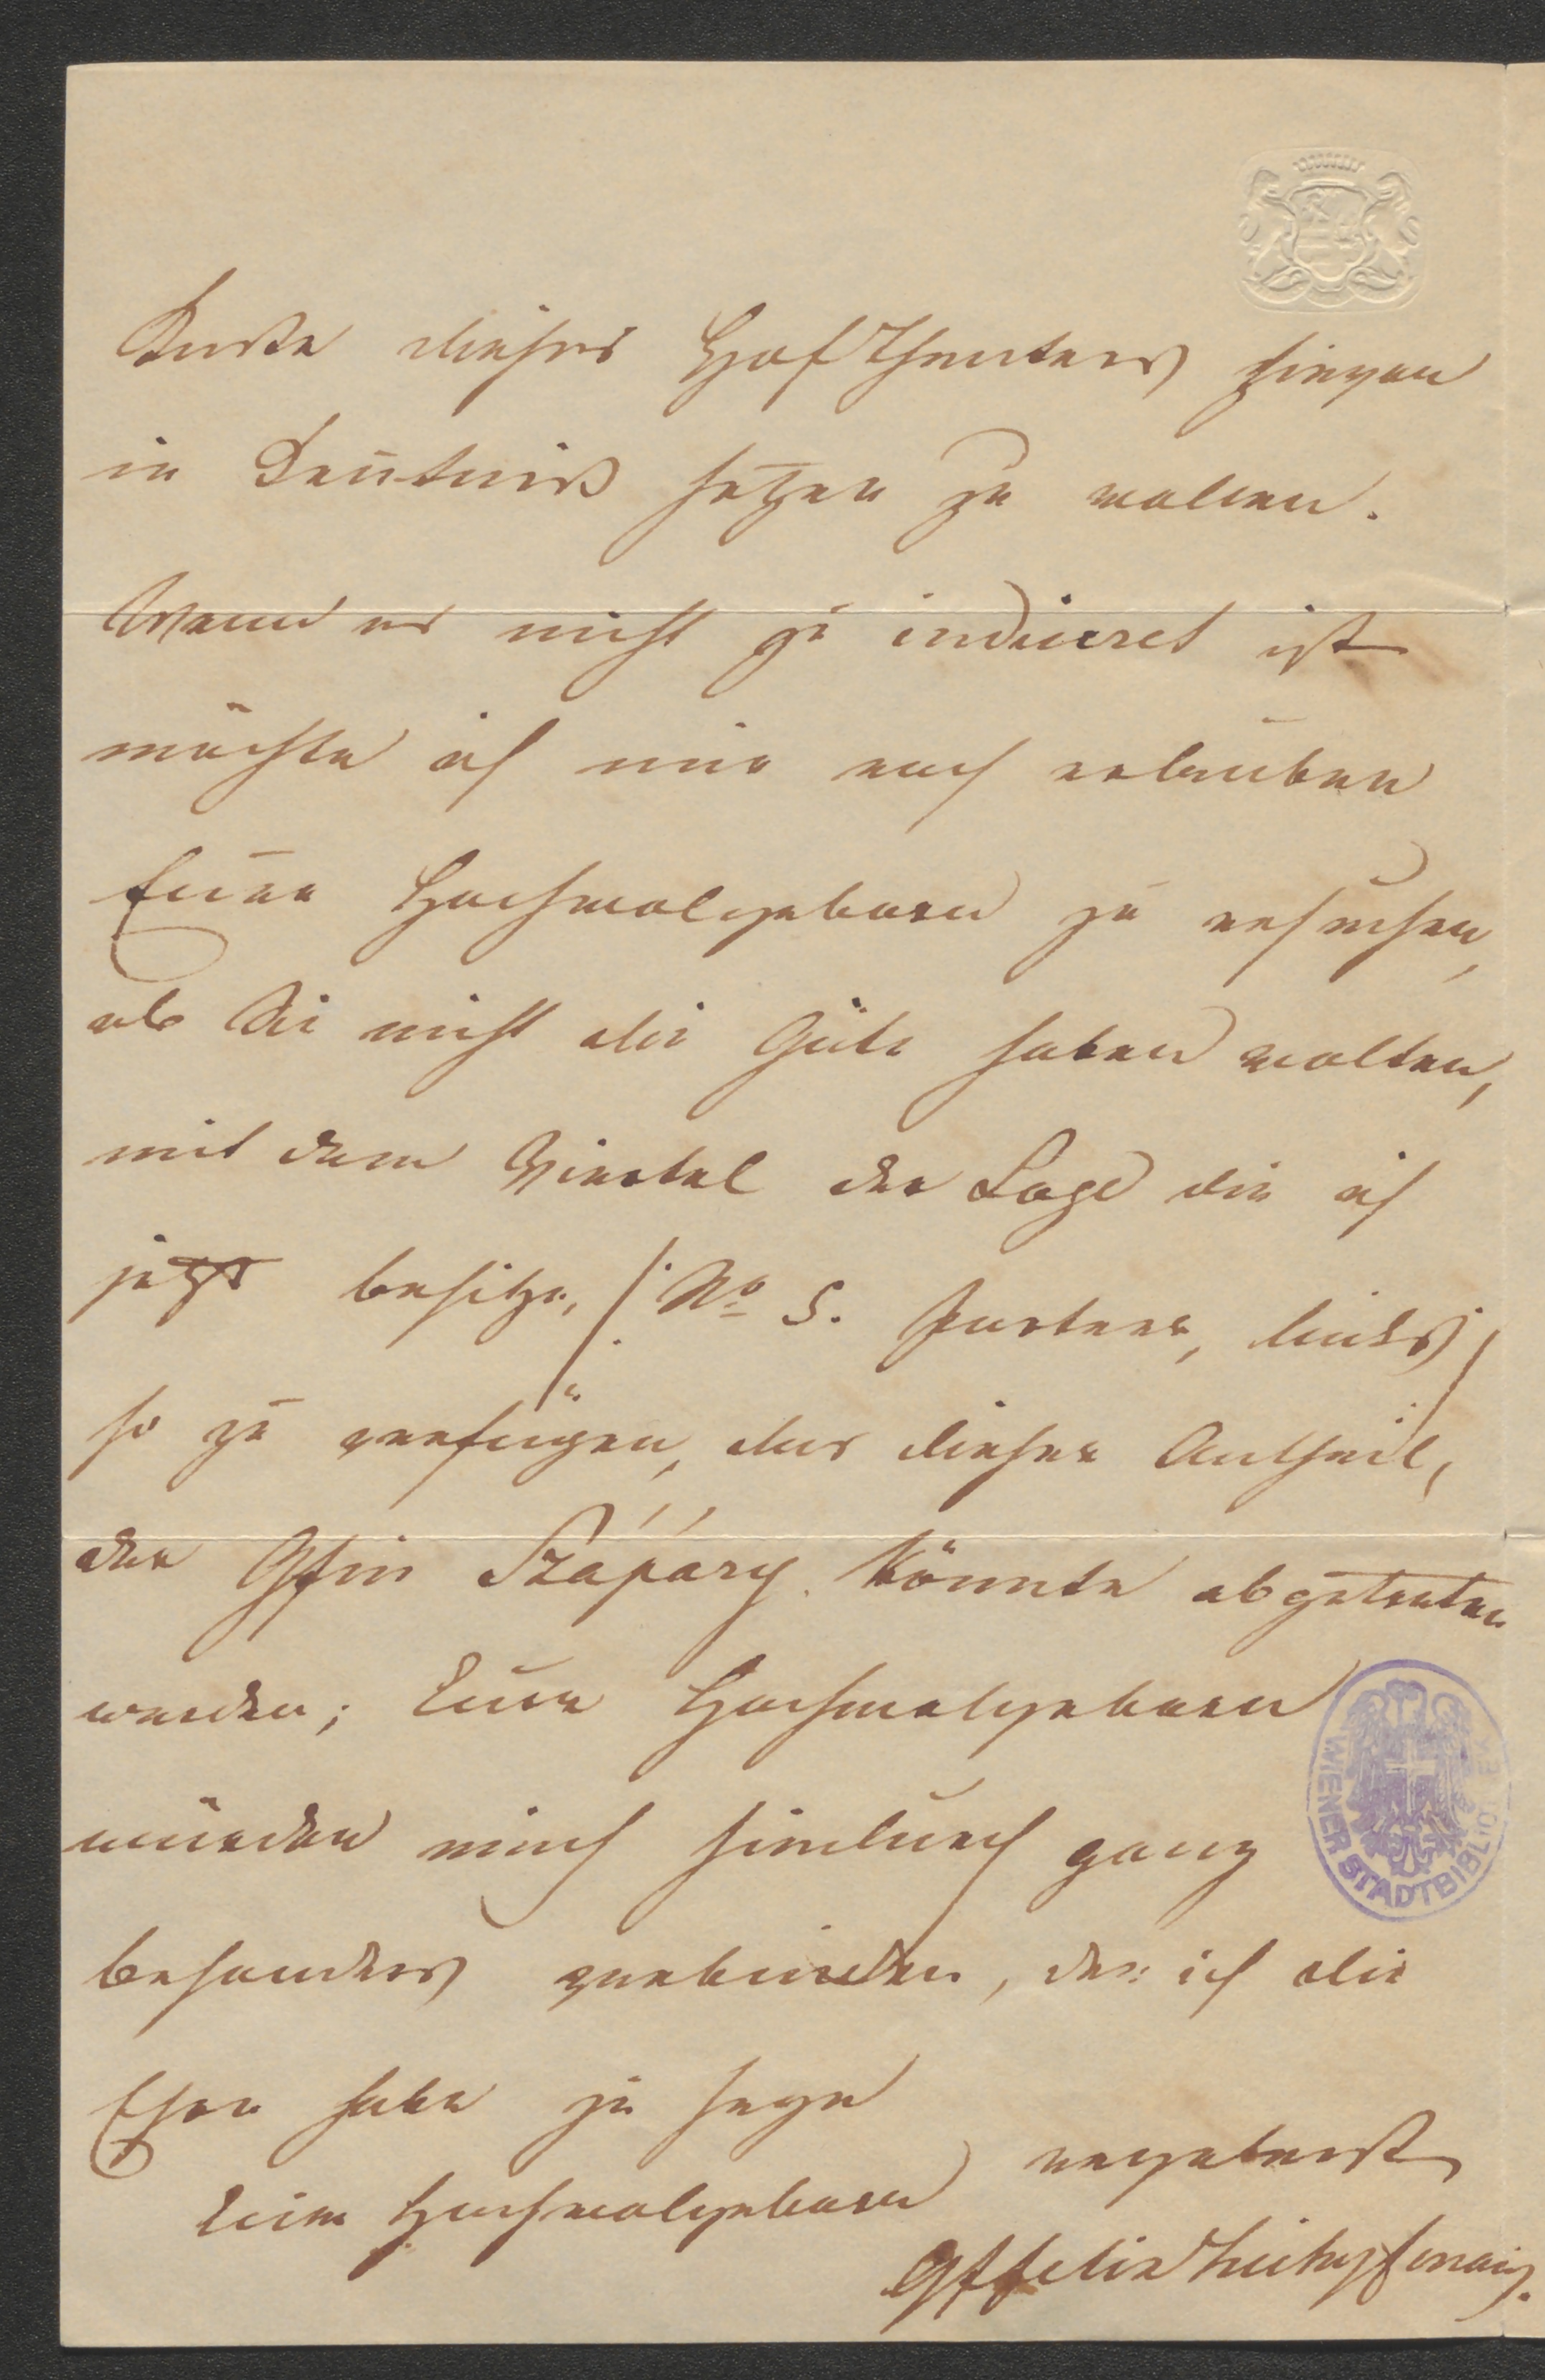 Kasse dieses Hoftheaters hievon
in Kentniß setzen zu wollen.
Wenn es nicht zu indiscret ist
möchte ich mir noch erlauben
Euer Hochwolgeboren zu ersuchen,
ob Sie nicht die Güte haben wolten,
mit dem Viertel der Loge die ich
jetzt besitze, /: No 5. Parterre, links :/
so zu verfügen, das dieser Antheil,
der Gfin Szápáry könnte abgetreten
werden; Euer Hochwolgeboren
würden mich hiedurch ganz
besonders verbinden, der ich die
Ehre habe zu seyn
Euer Hochwolgeboren ergebenst
WIENER STADTBIBLIOTHEK